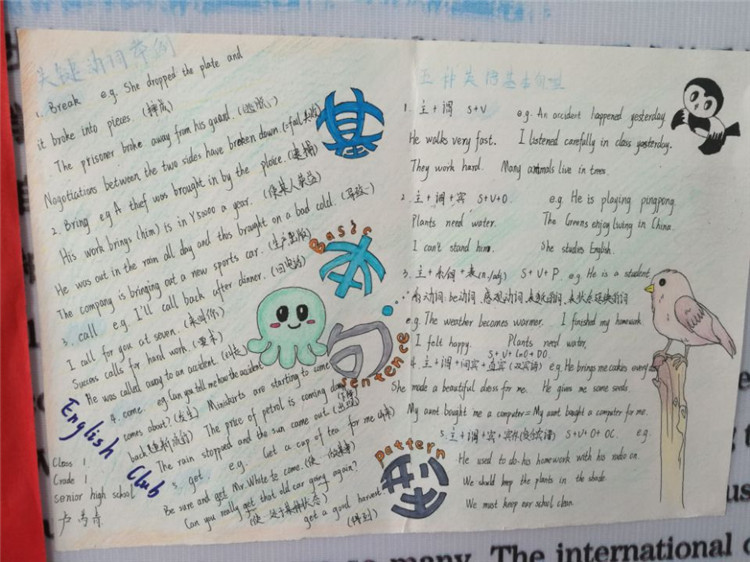 关键动词举例
1. Break e.g. She dropped the plate and
it broke into pieces.
The prisoner broke away from his guard.
Negotiations between the two sides have broken down.
2. Bring e.g A thief was brought in by the ploice.
His work brings (him) is in a year.
He was out in the rain all day and this brought on a bad cold.
The company is bringing out a new sports car.
3. call e.g. I'll call back after dinner. (回电话)
I call for you at seven.
Success calls for hard work. (要求)
He was called away to an accident.
4. come. eg Can you tell me how the accident
comes about? (发生) Miniskirts are starting to come
back. The price of petrol is coming down.
The rain stopped and the sun came out.
5. get. e.g. Get a cup of tea for me
Be sure and get Mr. White to come.
Can you really get that old car going again?
get a good harvest (得到)
English Club
Class 1
Grade 1
senior high school
基本句型
Basic
sentence
pattern
五种 基本句型
1. 主+谓 S+V e.g. An accident happened yesterday.
He walks very fast. I listened carefully in class yesterday.
They work hard. Many animals live in trees.
2. 主+谓+宾 S+V+O. e.g. He is playing pingpong.
Plants need water. The Greens enjoy living in China.
I can't stand him. She studies English.
3. 主+系+表(n./adj) S+V+P. e.g. He is a student
be动词、感观动词、
e.g. The weather becomes warmer. I finished my homework
I felt happy. Plants need water.
S+V+InO+DO.
4. 主+谓+间宾+直宾 e.g. He brings me cookies
She made a beautiful dress for me. He gives me some seeds.
My aunt bought me a computer=My aunt bought a computer for me.
5. 主+谓+宾+宾补 S+V+O+OC. e.g.
He used to do his homework with his radio on.
We should keep the plants in the shade.
We must keep our school clean.